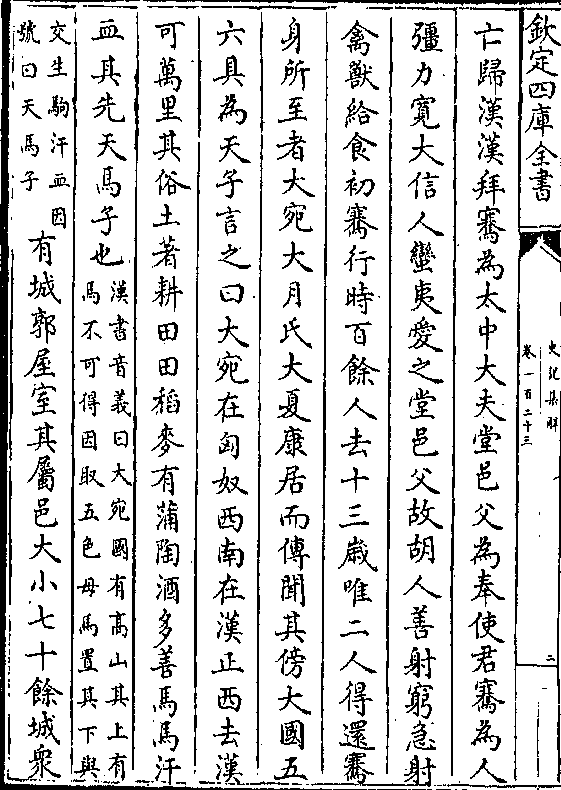 欽定四庫全書
史記集解
卷一百二十三
二
亡歸漢漢拜騫為太中大夫堂邑父為奉使君騫為人
彊力寛大信人蠻夷愛之堂邑父故胡人善射窮急射
禽獸給食初騫行時百餘人去十三嵗唯二人得還騫
身所至者大宛大月氏大夏康居而傳聞其傍大國五
六具為天子言之曰大宛在匈奴西南在漢正西去漢
可萬里其俗土著耕田田稻麥有蒲陶酒多善馬馬汗
血其先天馬子也
漢書音義曰大宛國有髙山其上有
馬不可得因取五色母馬置其下與
交生駒汗血因
號曰天馬子
有城郭屋室其屬邑大小七十餘城衆